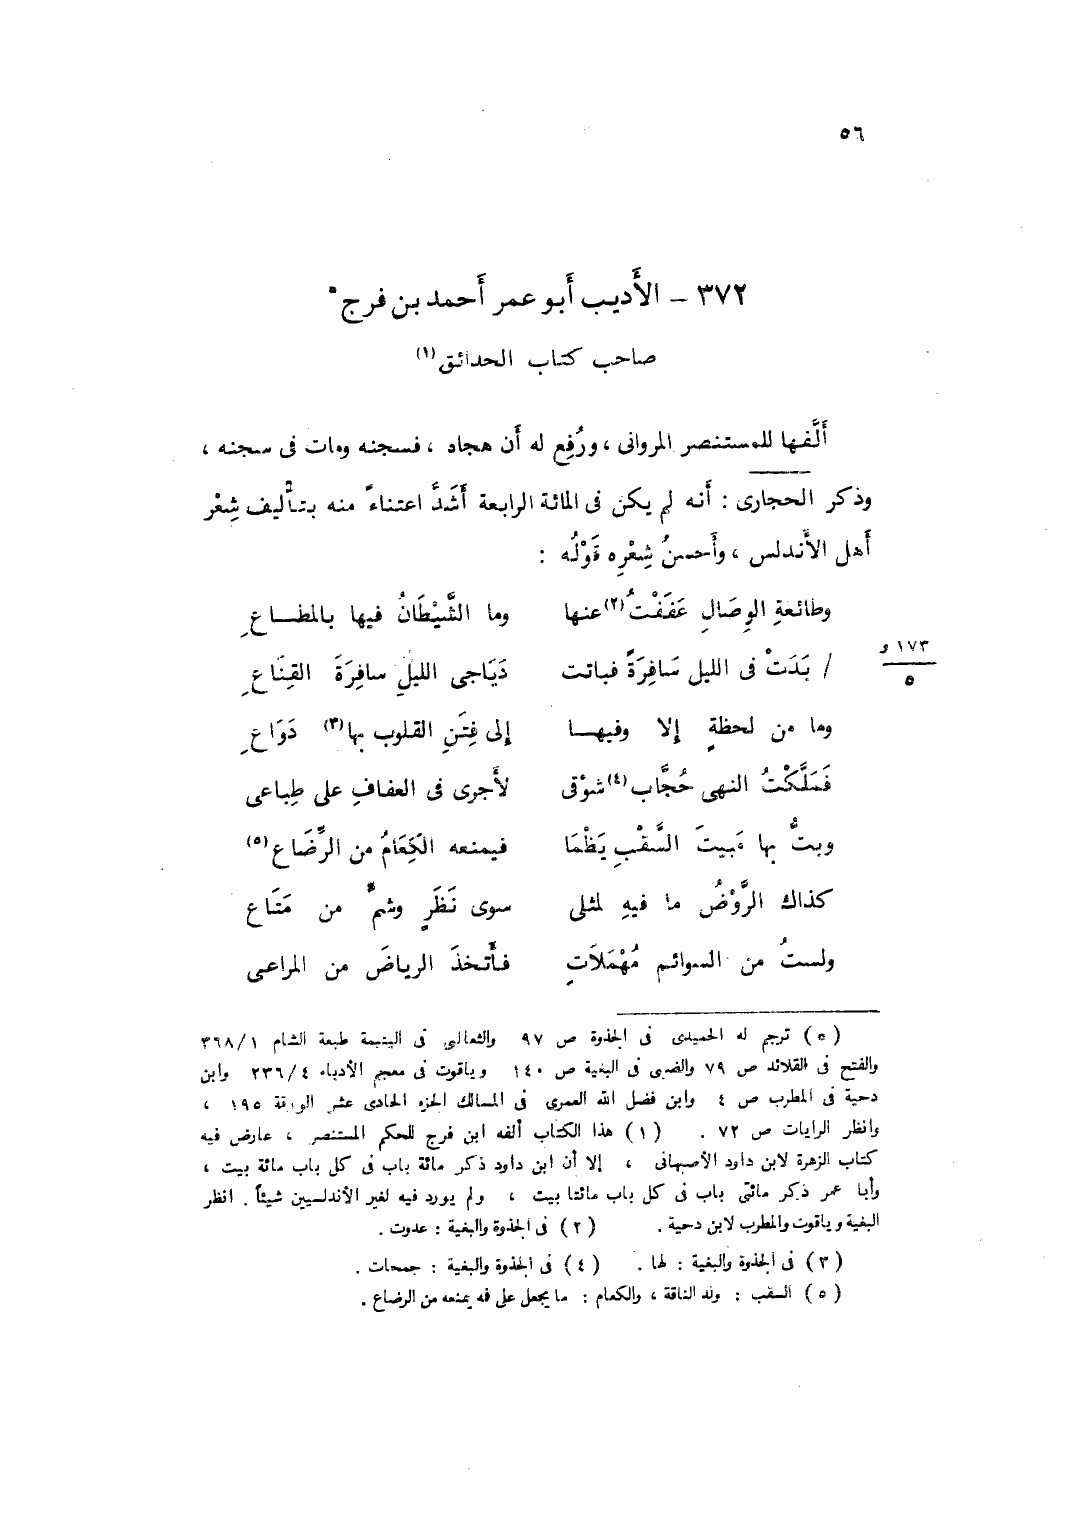 ٥٦
٣٧٢ – الأَديب أَبو عمر أَحمد بن فرج*
صاحب كتاب الحدائق(١)
أَلَّفها للمستنصر المروانى ، ورُفِع له أَن هجاه ، فسجنه ومات فى سجنه ،
وذكر الحجارى : أَنه لم يكن فى المائة الرابعة أَشَدَّ اعتناءً منه بتأْليف شِعْر
أَهل الأَندلس ، وأَحسنُ شِعْرِه قَوْلُه :
وطائعةِ الوِصَالِ عَفَفْتُ(٢) عنها وما الشَّيْطَانُ فيها بالمطــاعِ
/ بَدَتْ فى الليل سَافِرَةً فباتت دَيَاجى الليلِ سافِرَةَ القِنَاعِ
١٧٣ و
٥
وما من لحظةٍ إلا وفيهـا إلى فِتَنِ القلوب بها(٣) دَوَاعِ
فَمَلَّكْتُ النهى حُجَّاب(٤) شوْقى لأَجرى فى العفافِ على طِباعى
وبتُّ بها مَبيتَ السَّقْبِ يَظْمَا فيمنعه الكَِعَامُ من الرَِّضَاعِ(٥)
كذاك الرَّوْضُ ما فيهِ لمثلى سوى نَظَرٍ وشمٍّ من مَتَاعِ
ولستُ من السوائم مُهْمَلَاتٍ فأَتخذَ الرياضَ من المراعى
(*) ترجم له الحميدى فى الجذوة ص ٩٧ والثعالبى فى اليتيمة طبعة الشام ١/٣٦٨
والفتح فى القلائد ص ٧٩ والضبى فى البغية ص ١٤٠ وياقوت فى معجم الأدباء ٤/٢٣٦ وابن
دحية فى المطرب ص ٤ وابن فضل الله العمرى فى المسالك الجزء الحادى عشر الورقة ١٩٥ ،
وانظر الرايات ص ٧٢ . (١) هذا الكتاب ألفه ابن فرج للحكم المستنصر ، عارض فيه
كتاب الزهرة لابن داود الأصبهانى ، إلا أن ابن داود ذكر مائة باب فى كل باب مائة بيت ،
وأبا عمر ذكر مائتى باب فى كل باب مائتا بيت ، ولم يورد فيه لغير الأندلسيين شيئاً . انظر
البغية وياقوت والمطرب لابن دحية . (٢) فى الجذوة والبغية : عدوت .
(٣) فى الجذوة والبغية : لها . (٤) فى الجذوة والبغية : جمحات .
(٥) السقب : ولد الناقة ، والكعام : ما يجعل على فه يمنعه من الرضاع .